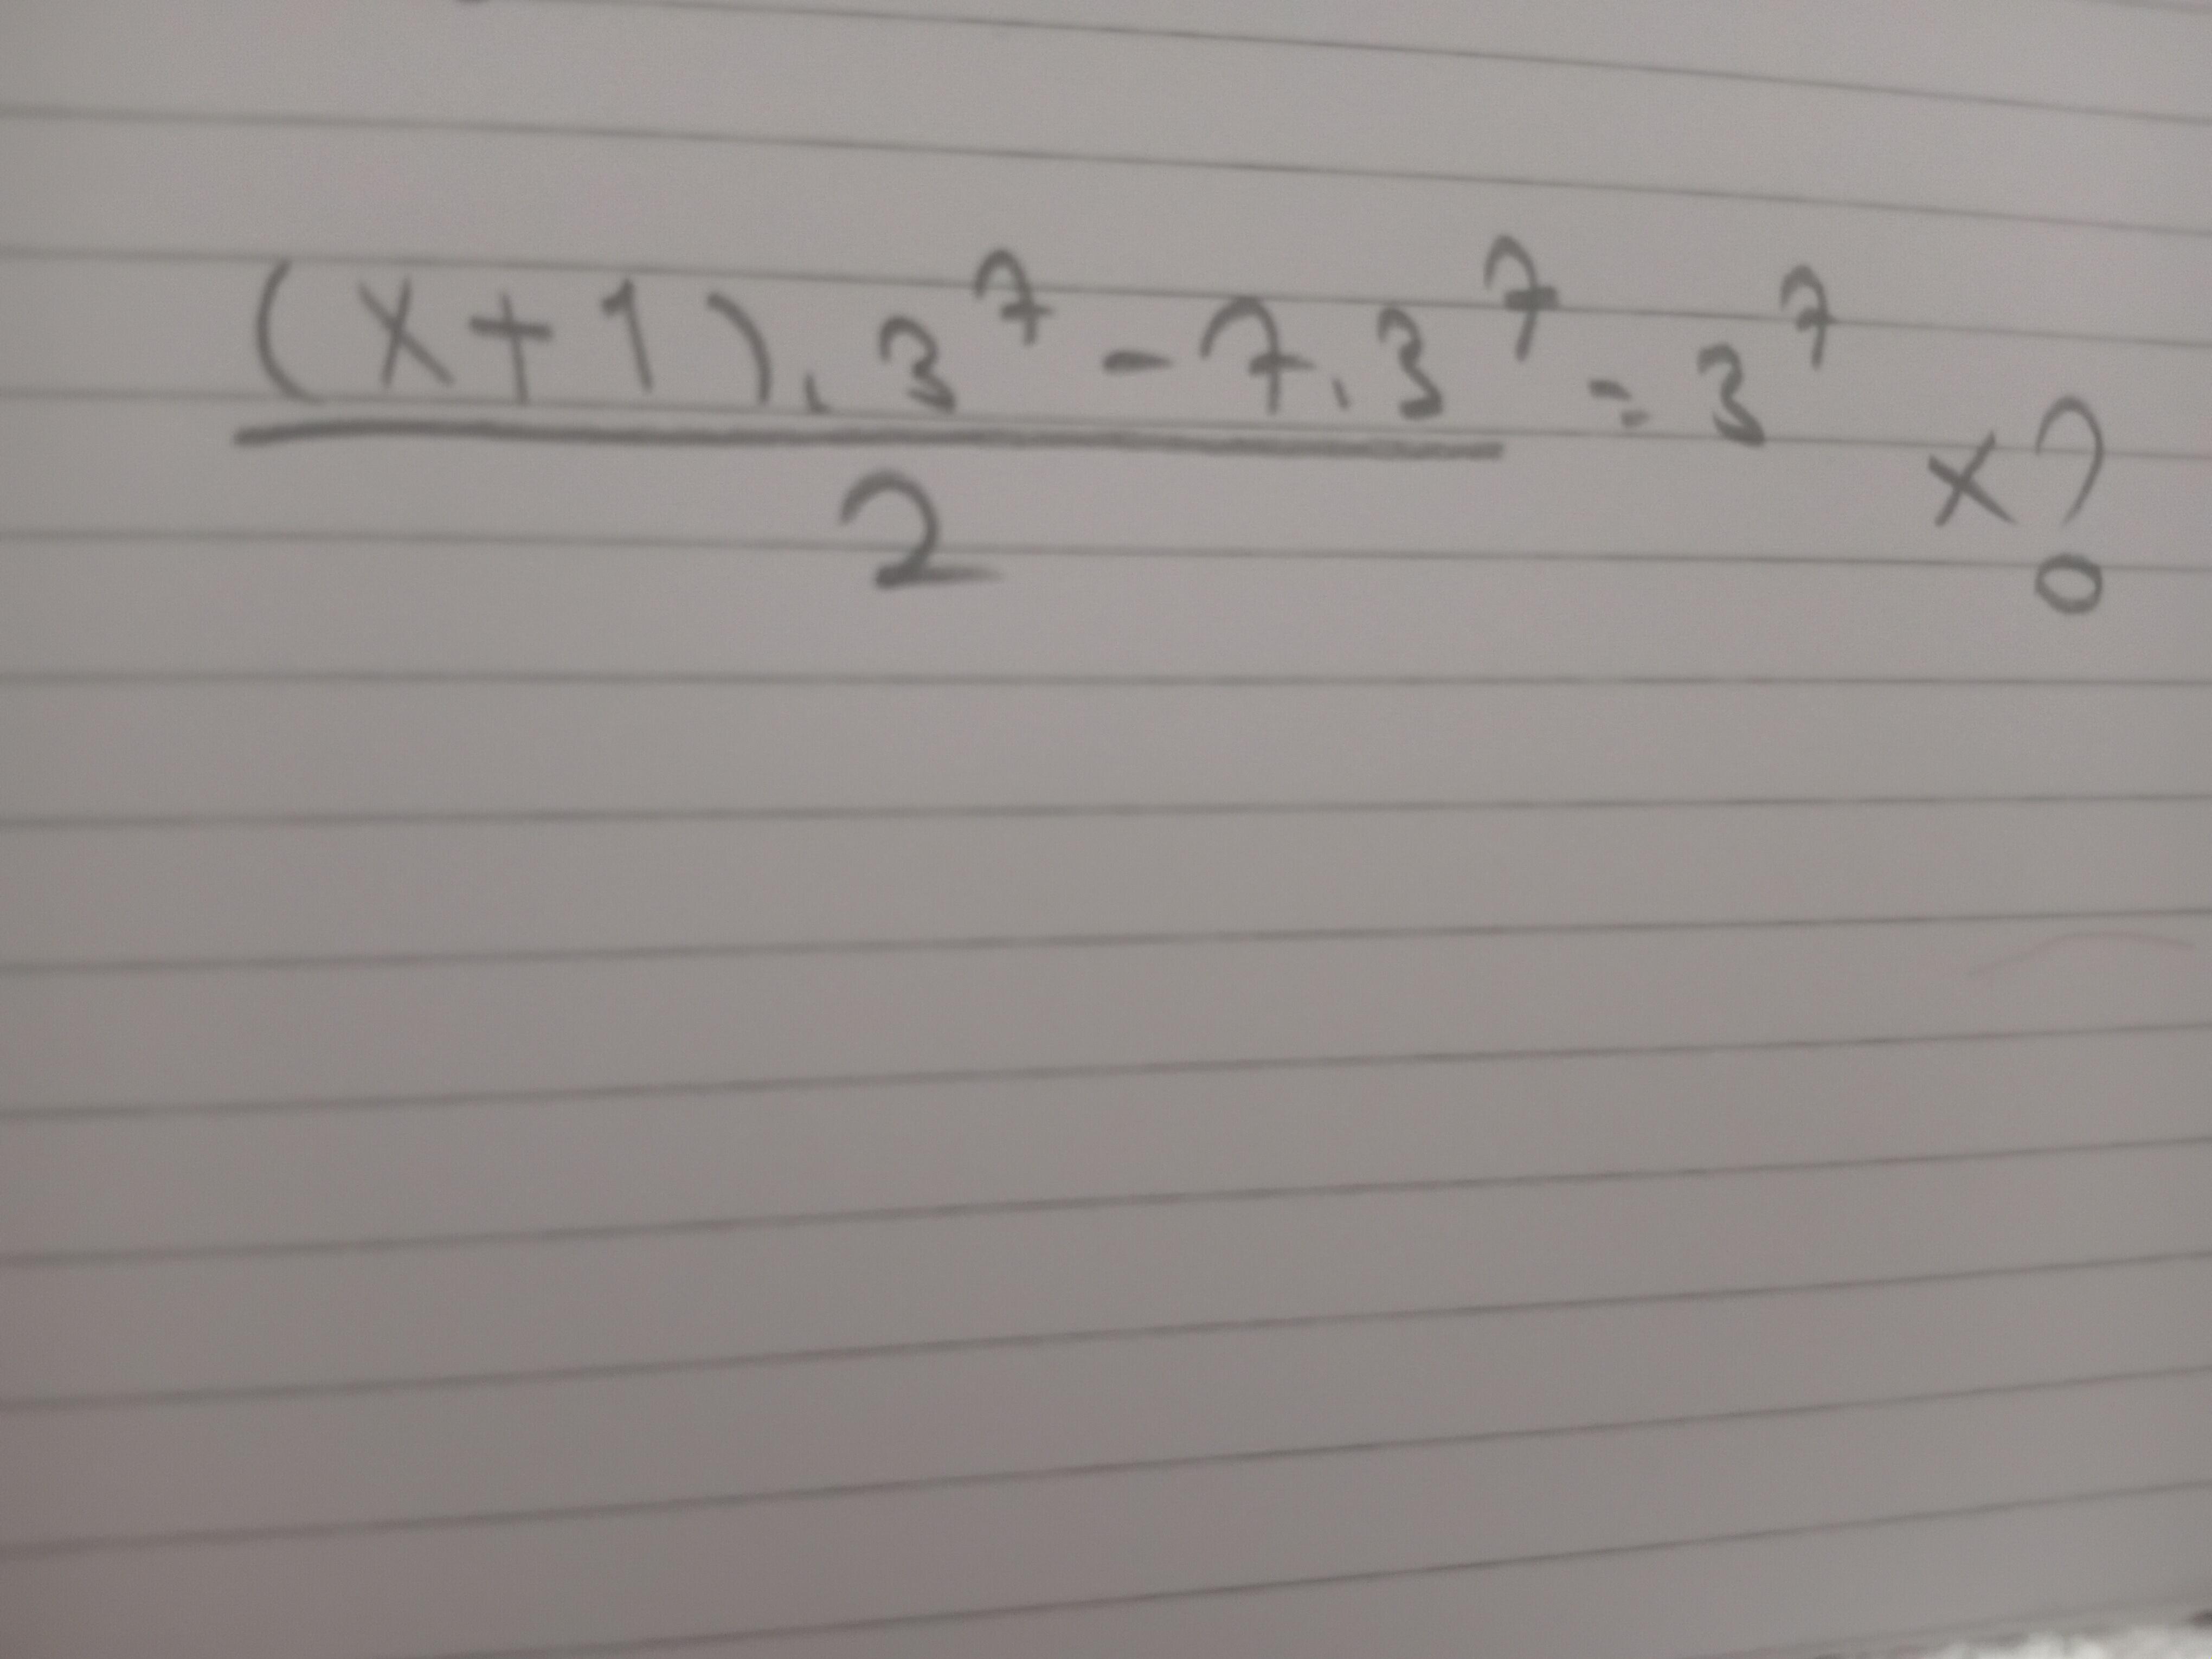 (x+1).3⁷ - 7.3⁷ = 3⁷ x?
2